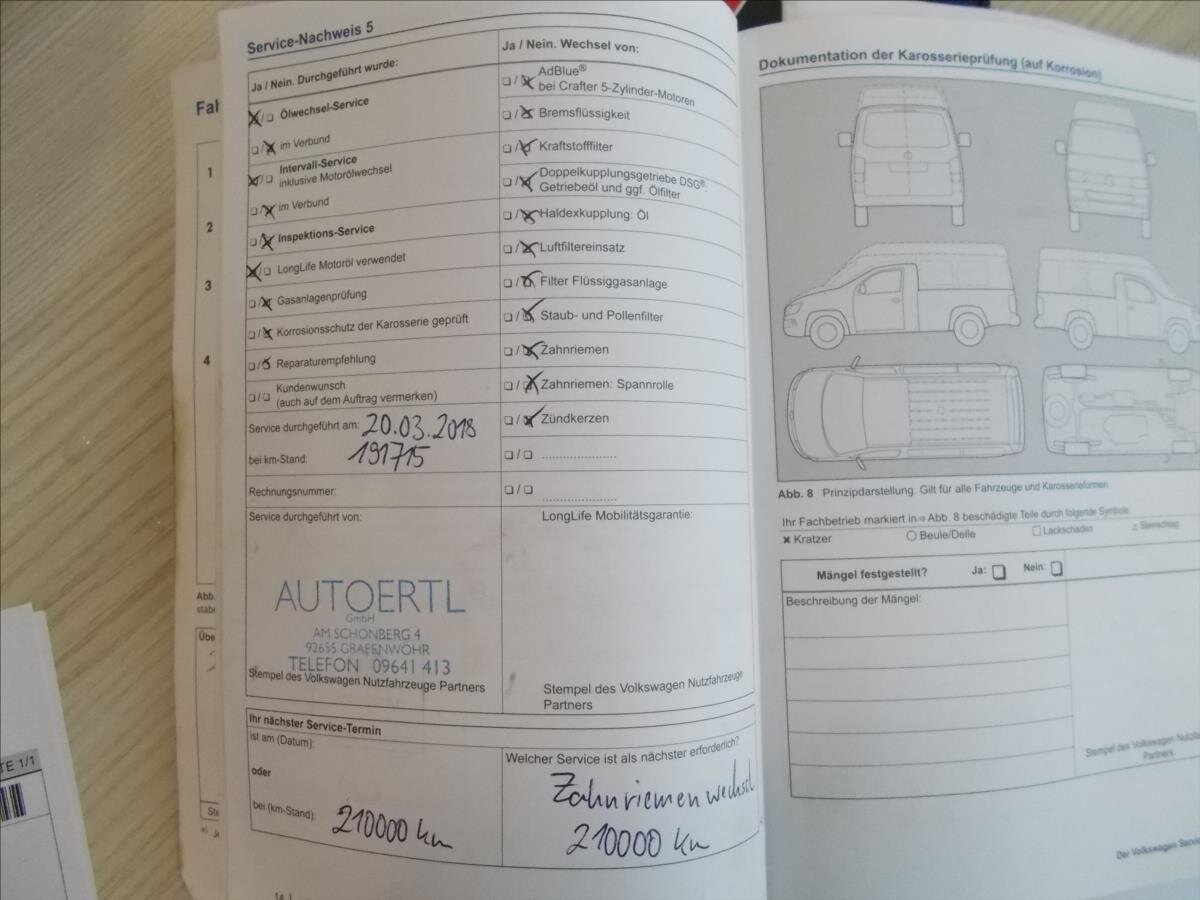 Service-Nachweis 5
Ja / Nein. Durchgeführt wurde:
Ölwechsel-Service
im Verbund
Intervall-Service
inklusive Motorölwechsel
im Verbund
Inspektions-Service
LongLife Motoröl verwendet
Gasanlagenprüfung
Korrosionsschutz der Karosserie geprüft
Reparaturempfehlung
Kundenwunsch
(auch auf dem Auftrag vermerken)
Service durchgeführt am: 20.03.2018
bei km-Stand: 191715
Rechnungsnummer:
Service durchgeführt von:
AUTOERTL
GmbH
AM SCHÖNBERG 4
92655 GRAFENWÖHR
TELEFON 09641 413
Stempel des Volkswagen Nutzfahrzeuge Partners
Ja / Nein. Wechsel von:
AdBlue®
bei Crafter 5-Zylinder-Motoren
Bremsflüssigkeit
Kraftstofffilter
Doppelkupplungsgetriebe DSG®:
Getriebeöl und ggf. Ölfilter
Haldexkupplung: Öl
Luftfiltereinsatz
Filter Flüssiggasanlage
Staub- und Pollenfilter
Zahnriemen
Zahnriemen: Spannrolle
Zündkerzen
LongLife Mobilitätsgarantie:
Stempel des Volkswagen Nutzfahrzeuge
Partners
Ihr nächster Service-Termin
ist am (Datum):
oder
bei (km-Stand): 210000 km
Welcher Service ist als nächster erforderlich?
Zahnriemenwechsel
210000 km
14
Dokumentation der Karosserieprüfung (auf Korrosion)
Abb. 8 Prinzipdarstellung. Gilt für alle Fahrzeuge und Karosserieformen.
Ihr Fachbetrieb markiert in ⇒ Abb. 8 beschädigte Teile durch folgende Symbole
Kratzer
Beule/Delle
Lackschaden
Steinschlag
Mängel festgestellt? Ja: Nein:
Beschreibung der Mängel:
Stempel des Volkswagen
Partners
Der Volkswagen
Fah
1
2
3
4
Abb.
stabe
Übe
TE 1/1